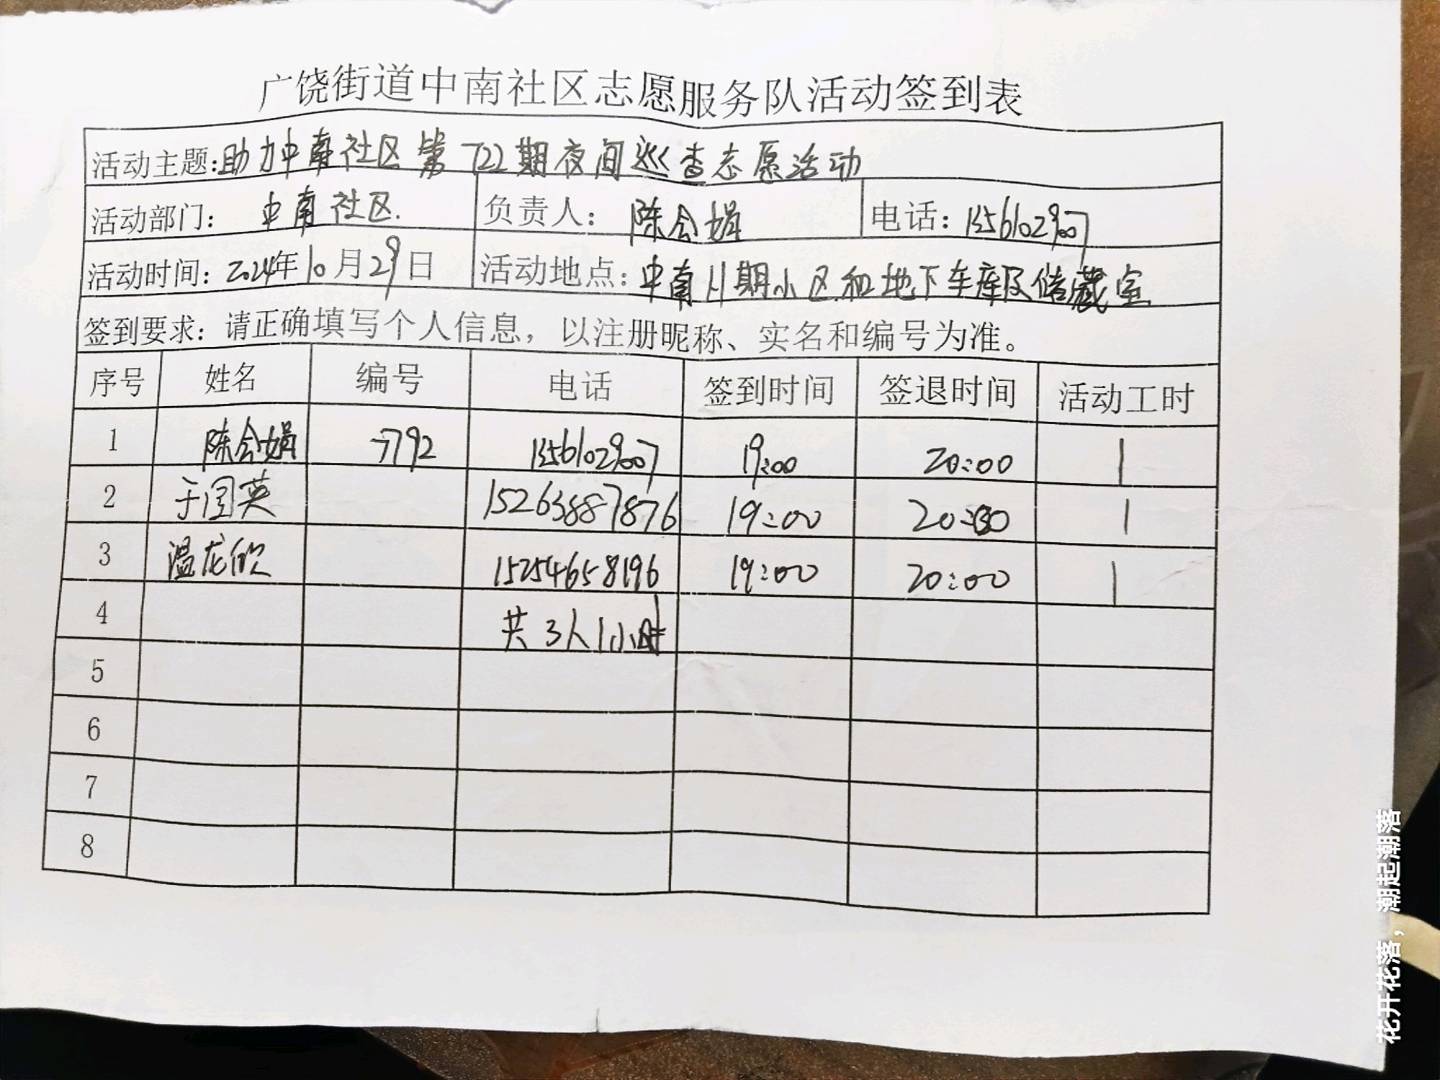 广饶街道中南社区志愿服务队活动签到表
活动主题:助力中南社区第722期夜间巡查志愿活动
活动部门: 中南社区. 负责人: 陈会娟 电话: 13561029007
活动时间: 2024年10月29日 活动地点: 中南11期小区和地下车库及储藏室
签到要求: 请正确填写个人信息, 以注册昵称、实名和编号为准。
序号 姓名 编号 电话 签到时间 签退时间 活动工时
1 陈会娟 7792 13561029007 19:00 20:00 1
2 于国英 15263887876 19:00 20:00 1
3 温龙欣 15254658196 19:00 20:00 1
4 共3人1小时
5
6
7
8
花开花落，潮起潮落